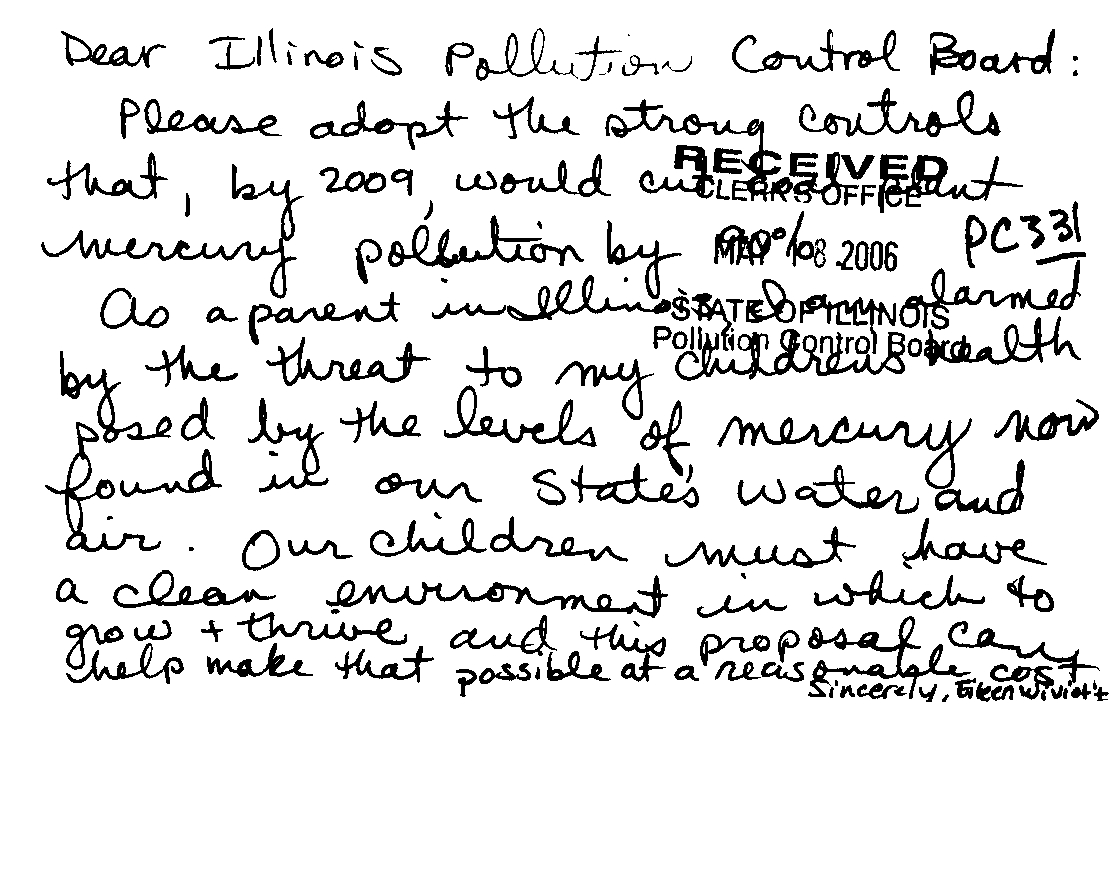 Dear Illinois Pollution Control Board:
Please adopt the strong controls
RECEIVED
that, by 2009, would cut coal plant
CLERK'S OFFICE
mercury pollution by 90%.
MAY 08 2006
PC331
As a parent in Illinois, I am alarmed
STATE OF ILLINOIS
Pollution Control Board
by the threat to my childrens health
posed by the levels of mercury now
found in our State's water and
air. Our children must have
a clean environment in which to
grow + thrive and this proposal can
help make that possible at a reasonable cost
Sincerely, Eileen Wiviott